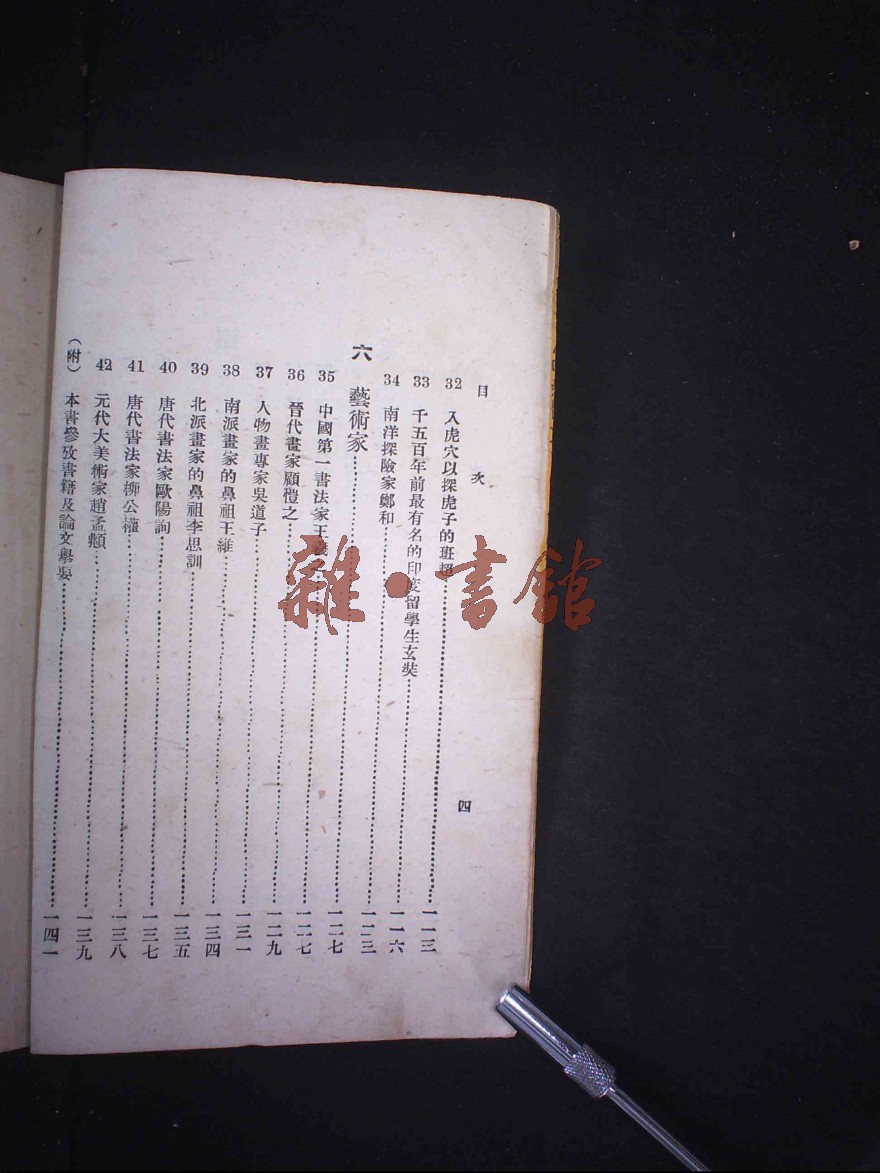 目次 四
32 入虎穴以探虎子的班超……一一三
33 千五百年前最有名的印度留學生玄奘……一一六
34 南洋探險家鄭和……一二三
六 藝術家……一二七
35 中國第一書法家王羲……一二七
36 晉代畫家顧愷之……一二九
37 人物畫專家吳道子……一三一
38 南派畫家的鼻祖王維……一三四
39 北派畫家的鼻祖李思訓……一三五
40 唐代書法家歐陽詢……一三七
41 唐代書法家柳公權……一三八
42 元代大美術家趙孟頫……一三九
(附) 本書參攷書籍及論文舉要……一四一
雜·書館